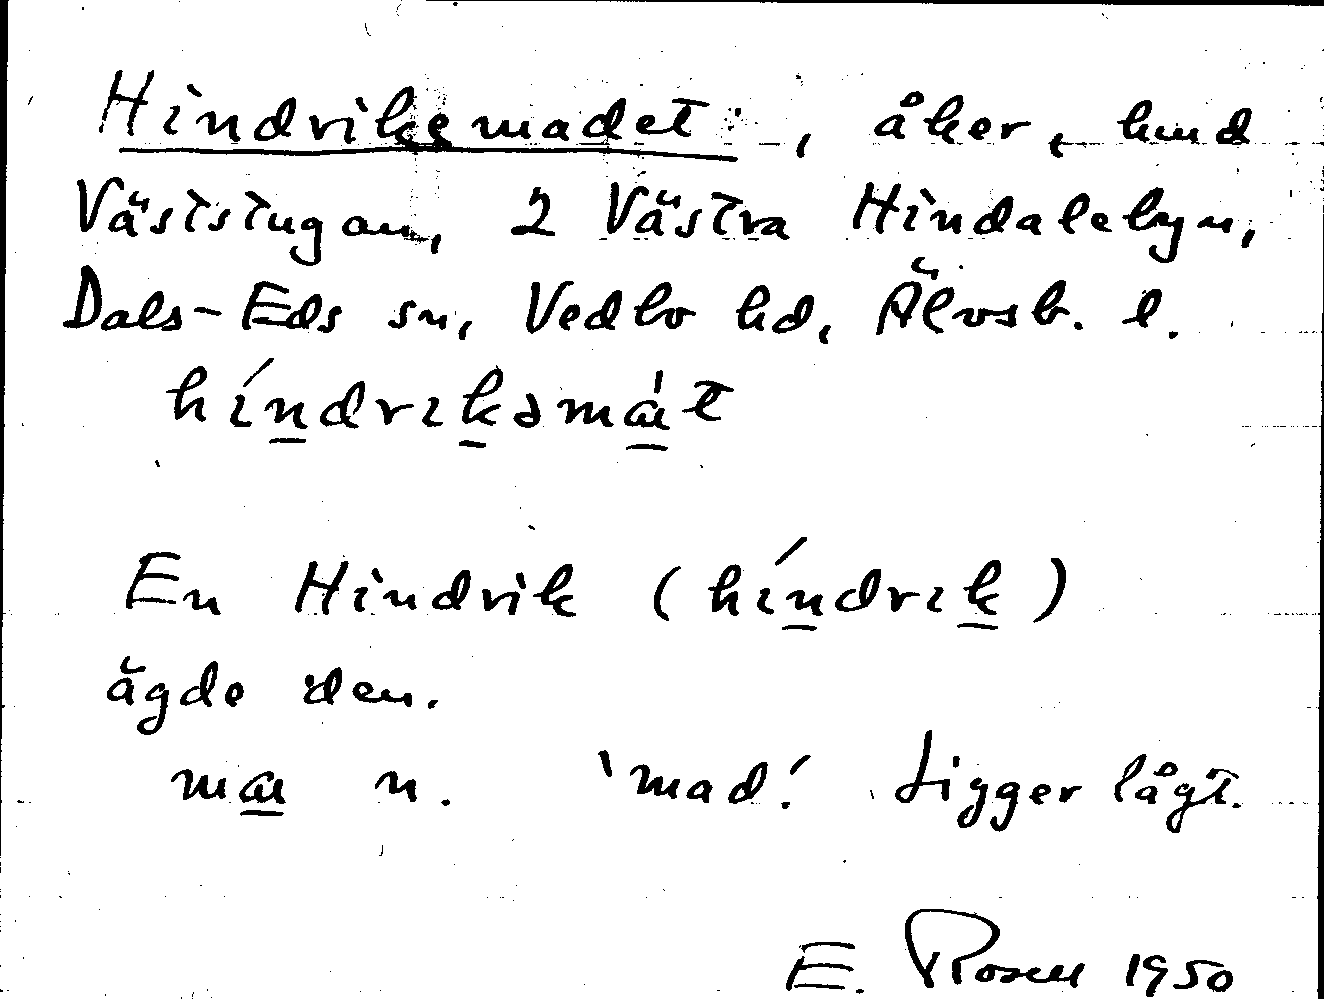 Hindrikemadet, åker, hmd
Väststugan, 2 Västra Hindalebyn,
Dals-Eds sn, Vedbo hd, Älvsb. l.
híndrıkəmát
En Hindrik (híndrık)
ägde den.
ma n. 'mad'. Ligger lågt.
E. Rosell 1950